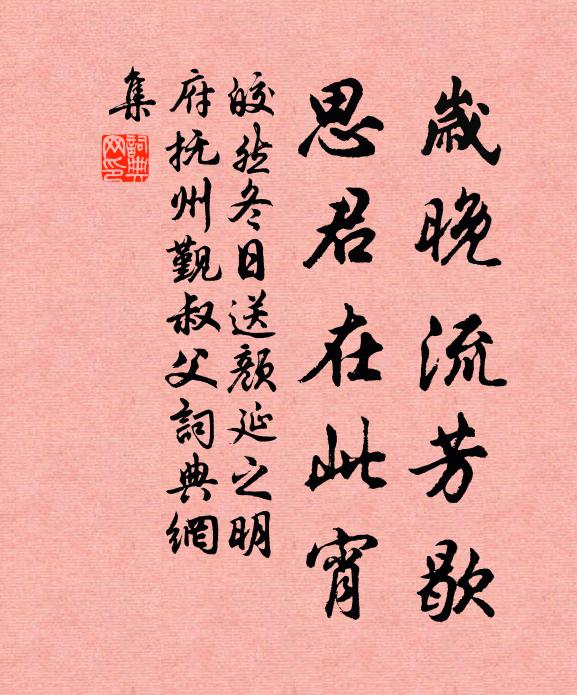 歲晚流芳歇
思君在此宵
皎然冬日送顏延之明
府抚州觐叔父詞典網
集
詞典網印